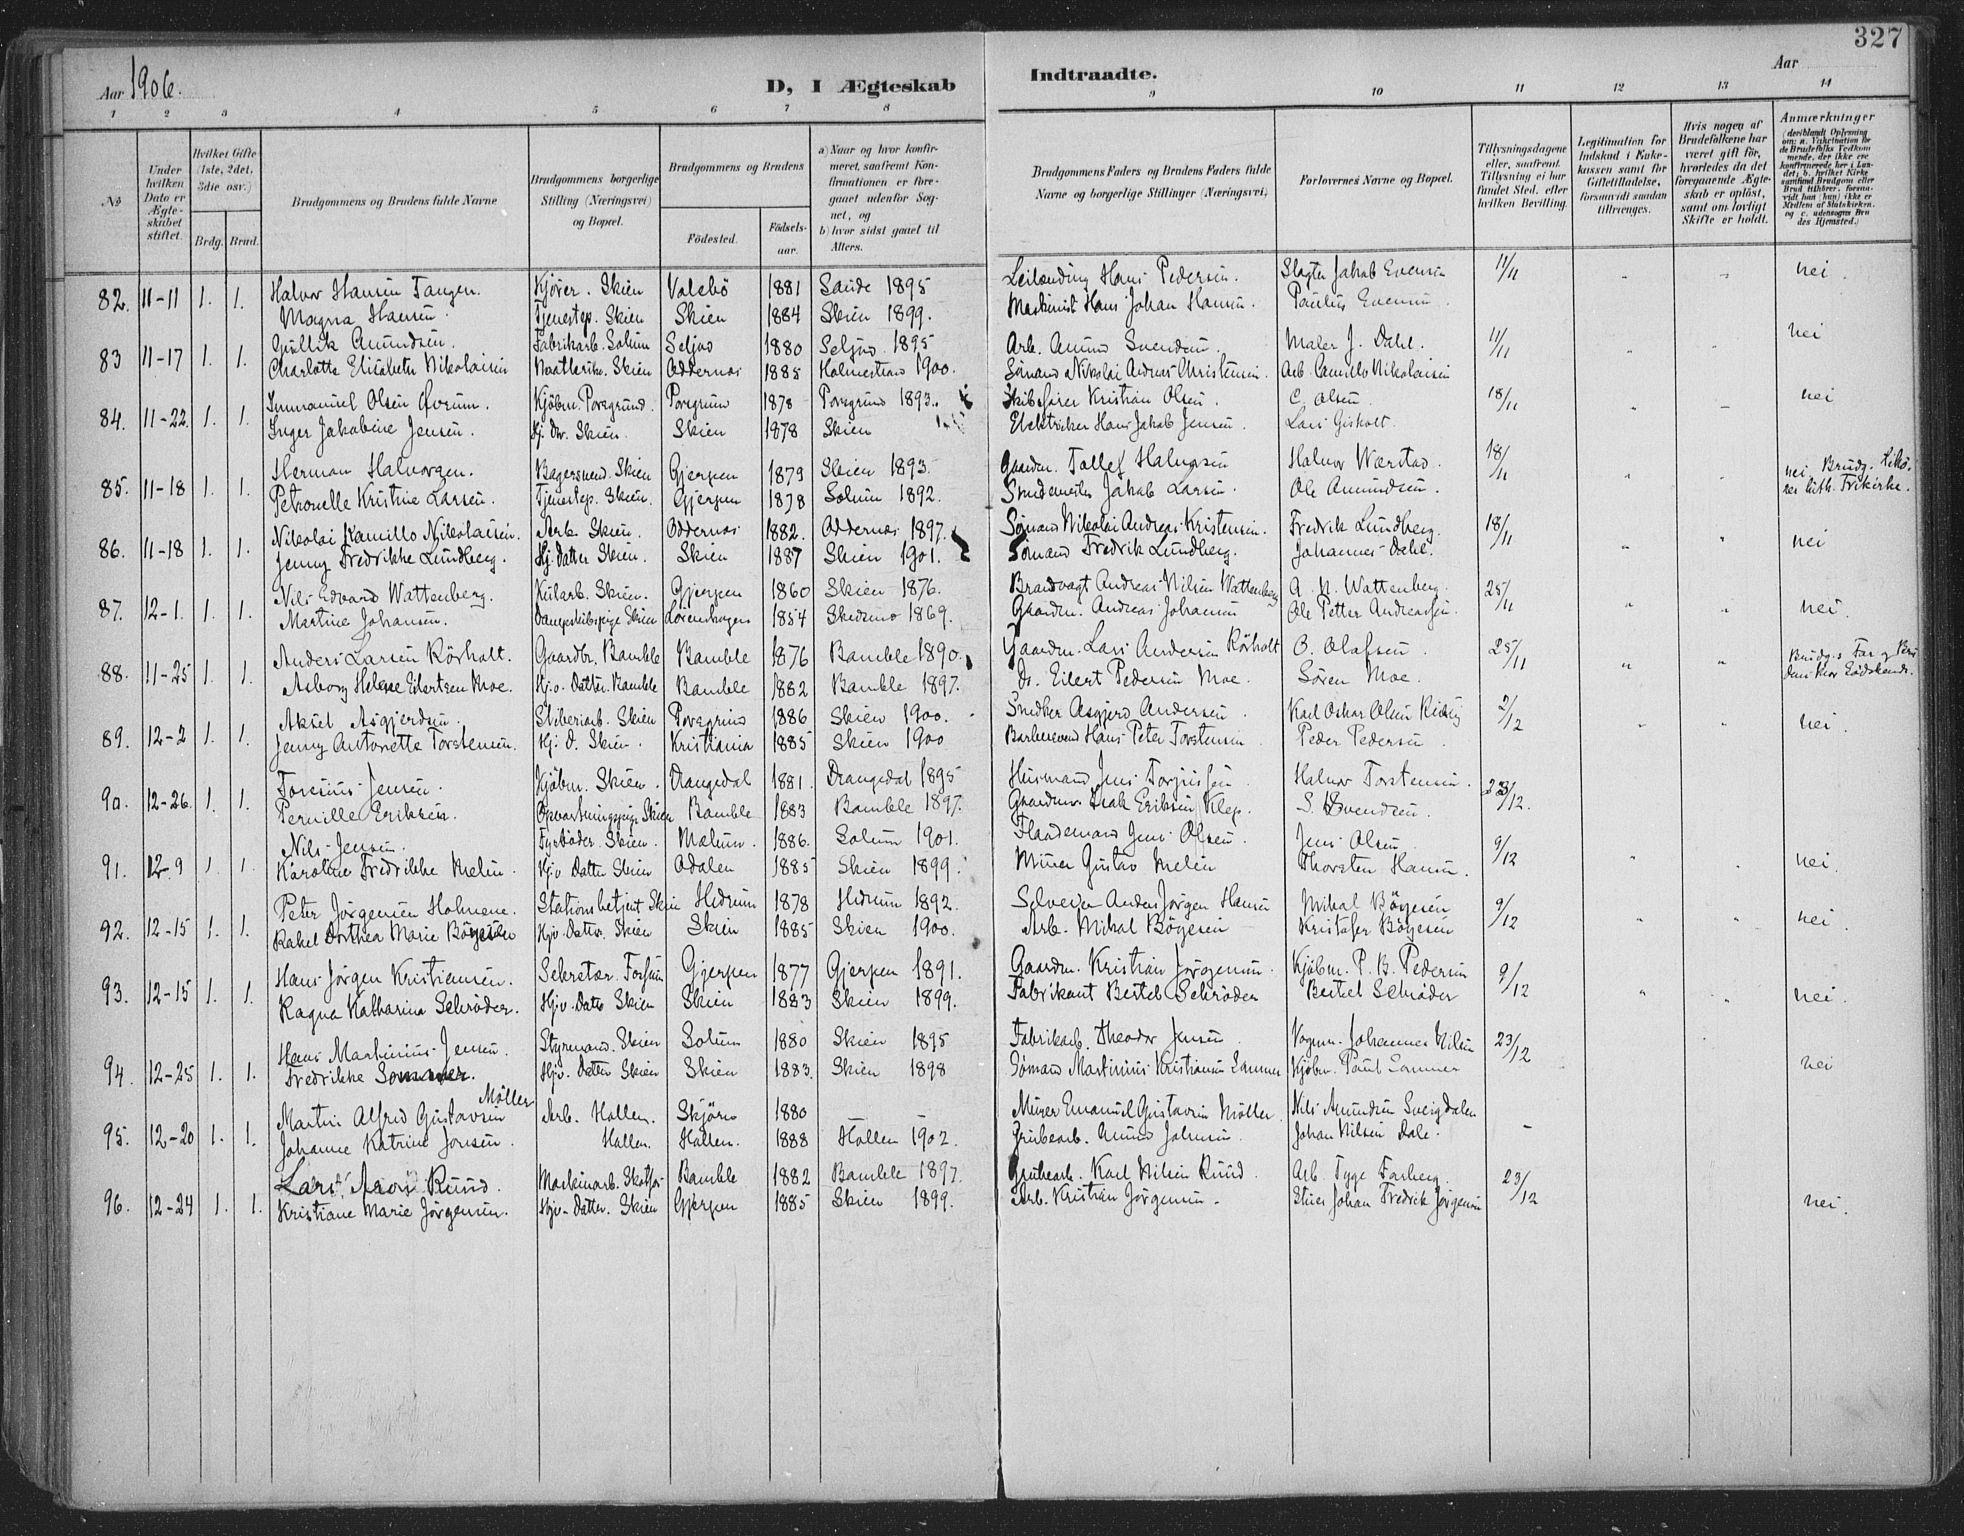 327
Aar 1906. D, I Ægteskab Indtraadte. Aar
1 2 3 4 5 6 7 8 9 10 11 12 13 14
№
Under hvilken Dato er Ægteskabet stiftet.
Hvilket Gifte (1ste, 2det, 3die osv.)
Brdg. Brud.
Brudgommens og Brudens fulde Navne
Brudgommens borgerlige Stilling (Næringsvei) og Bopæl.
Brudgommens og Brudens
Fødested. Fødselsaar.
a) Naar og hvor konfirmeret, saafremt Konfirmationen er foregaaet udenfor Sognet, og
b) hvor sidst gaaet til Alters.
Brudgommens Faders og Brudens Faders fulde Navne og borgerlige Stillinger (Næringsvei)
Forlovernes Navne og Bopæl.
Tillysningsdagene eller, saafremt Tillysning ei har fundet Sted, efter hvilken Bevilling.
Legitimation for Indskud i Enkekassen samt for Giftetilladelse, forsaavidt saadan tiltrænges.
Hvis nogen af Brudefolkene har været gift før, hvorledes da det foregaaende Ægteskab er opløst, samt om lovligt Skifte er holdt.
Anmærkninger
82. 11-11 1. 1. Halvor Hansen Tangen. Kjører. Skien Valebö 1881 Saude 1895 Leilending Hans Pedersen. Slagter Jakob Evensen 11/11 " " nei.
Magna Hansen. Tjenestep. Skien Skien 1884 Skien 1899. Maskinist Hans Johan Hansen. Paulus Evensen.
83 11-17 1. 1. Gullik Amundsen. Fabrikarb. Solum Seljord 1880 Seljord 1895 Arb. Amund Svendsen. Maler J. Dahl. 11/11 " " nei
Charlotte Elisabeth Nikolaisen Skien Oddernes 1885 Holmestrand 1900. Sømand Nikolai Andreas Christensen. Arb. Camillo Nikolaisen
84. 11-22. 1. 1. Immanuel Olsen Kjøbm. Porsgrund. Porsgrund 1878 Porsgrund 1893. Skibsfører Kristian Olsen. C. Olsen. 18/11 " " nei
Inger Jakobine Jensen. Hj. Dtr. Skien. Skien 1878 Skien Elektriker Hans Jakob Jensen. Lars Gisholt.
85. 11-18 1. 1. Herman Halvorsen. Bagersvend. Skien Gjerpen 1879 Skien 1893. Gaardm. Tollef Halvorsen Halvor Wærstad. 18/11 " " nei Brudg.
Petronelle Kristine Larsen. Tjenestep. Skien. Gjerpen 1878 Solum 1892. Smedemester Jakob Larsen. Ole Amundsen. nei luth. Frikirke.
86. 11-18 1. 1. Nikolai Kamillo Nikolaisen. Arb. Skien. Oddernes 1882. Oddernes 1897. Sømand Nikolai Andreas Kristensen. Fredrik Lundberg. 18/11 " " nei
Jenny Fredrikke Lundberg. Hj. datter Skien. Skien 1887 Skien 1901. Sømand Fredrik Lundberg. Johannes Dahl.
87. 12-1. 1. 1. Nils Edvard Wattenberg. Kularb. Skien. Gjerpen 1860 Skien 1876. Brandvagt Andreas Nilsen Wattenberg A. N. Wattenberg. 25/11 " " nei.
Martine Johansen. Dampskibspige Skien Lørenskogen 1854 Skedsmo 1869. Gaardm. Andreas Johansen Ole Petter Andreassen.
88. 11-25 1. 1. Anders Larsen Rörholt. Gaardbr. Bamble Bamble 1876 Bamble 1890. Gaardm. Lars Andersen Rörholt O. Olafsen. 25/11 " " Brudg.s Far og
Asborg Helene Eilertsen Moe. Hj. Datter. Bamble Bamble 1882 Bamble 1897. Do. Eilert Pedersen Moe. Søren Moe. Mor Södskende.
89. 12-2 1. 1. Aksel Asgjerdsen. Skien Porsgrund 1886 Skien 1900. Snedker Asgjerd Andersen. Karl Oskar Olsen 2/12 " " nei
Jenny Antonette Torstensen. Hj. D. Skien. Kristiania 1885 Skien 1900 Barbersvend Hans Peter Torstensen Peder Pedersen
90. 12-26. 1. 1. Jensen. Kjøbm. Skien. Drangedal 1881. Drangedal 1895 Husmand Jens Halvor Torstensen. 23/12.
Pernille Eriksen. Opvartningspige Skien Bamble 1883 Bamble 1897. Gaardmand Isak Eriksen Klep. S. Svendsen.
91. 12-9 1. 1. Nils Jensen. Fyrböder. Skien. Mælum. 1886. Solum 1901. Flaademand Jens Olsen. Jens Olsen. 9/12 " " nei.
Karoline Fredrikke Melin. Hjv. Datter Skien Ådalen 1885 Skien 1899. Murer Gustav Melin Thorsten Hansen.
92. 12-15 1. 1. Peter Jörgensen Holmene. Stationsbetjent Skien Hedrum 1878 Hedrum 1892. Selveier Anders Jörgen Hansen Mikal Böyesen 9/12 " " nei.
Rakel Dorthea Marie Böyesen Hjv. Datter. Skien Skien 1885 Skien 1900. Arb. Mikal Böyesen Kristofer Böyesen
93. 12-15 1. 1. Hans Jörgen Kristiansen. Sekretær. Gjerpen 1877 Gjerpen 1891. Gaardm. Kristian Jörgensen. Kjöbm. P. B. Pedersen 9/12 " " nei.
Ragna Katharina Schrøder. Hjv. Datter Skien Skien 1883 Skien 1899. Fabrikant Bertel Schrøder Bertel Schrøder
94. 12-25 1. 1. Hans Martinius Jensen. Styrmand. Skien Solum 1880 Skien 1895 Fabrikarb. Theodor Jensen Vognm. Johannes Nilsen 23/12 nei
Fredrikke Sommer. Hjv. Datter Skien Skien 1883. Skien 1898 Sømand Martinius Kristiansen Sommer Kjöbm. Paul Sommer
95. 12-20 1. 1. Martin Alfred Gustavsen Möller Arb. Hollen. Skjörn 1880 Murer Emanuel Gustavsen Möller. Nils Amundsen Sveigdalen -
Johanne Katrine Jonsen. Hollen. Hollen. 1888 Hollen 1902. Grubearb. Amund Johnsen. Johan Nilsen Dale.
96. 12-24 1. 1. Lars Aron Ruud. Maskinarb. Skotfos Bamble 1882 Bamble 1897. Grubearb. Karl Nilsen Ruud. Arb. Tyge Farberg. 23/12 nei.
Kristiane Marie Jörgensen. Hjv. Datter. Skien Gjerpen 1885 Skien 1899. Arb. Kristian Jörgensen. Johan Fredrik Jörgensen